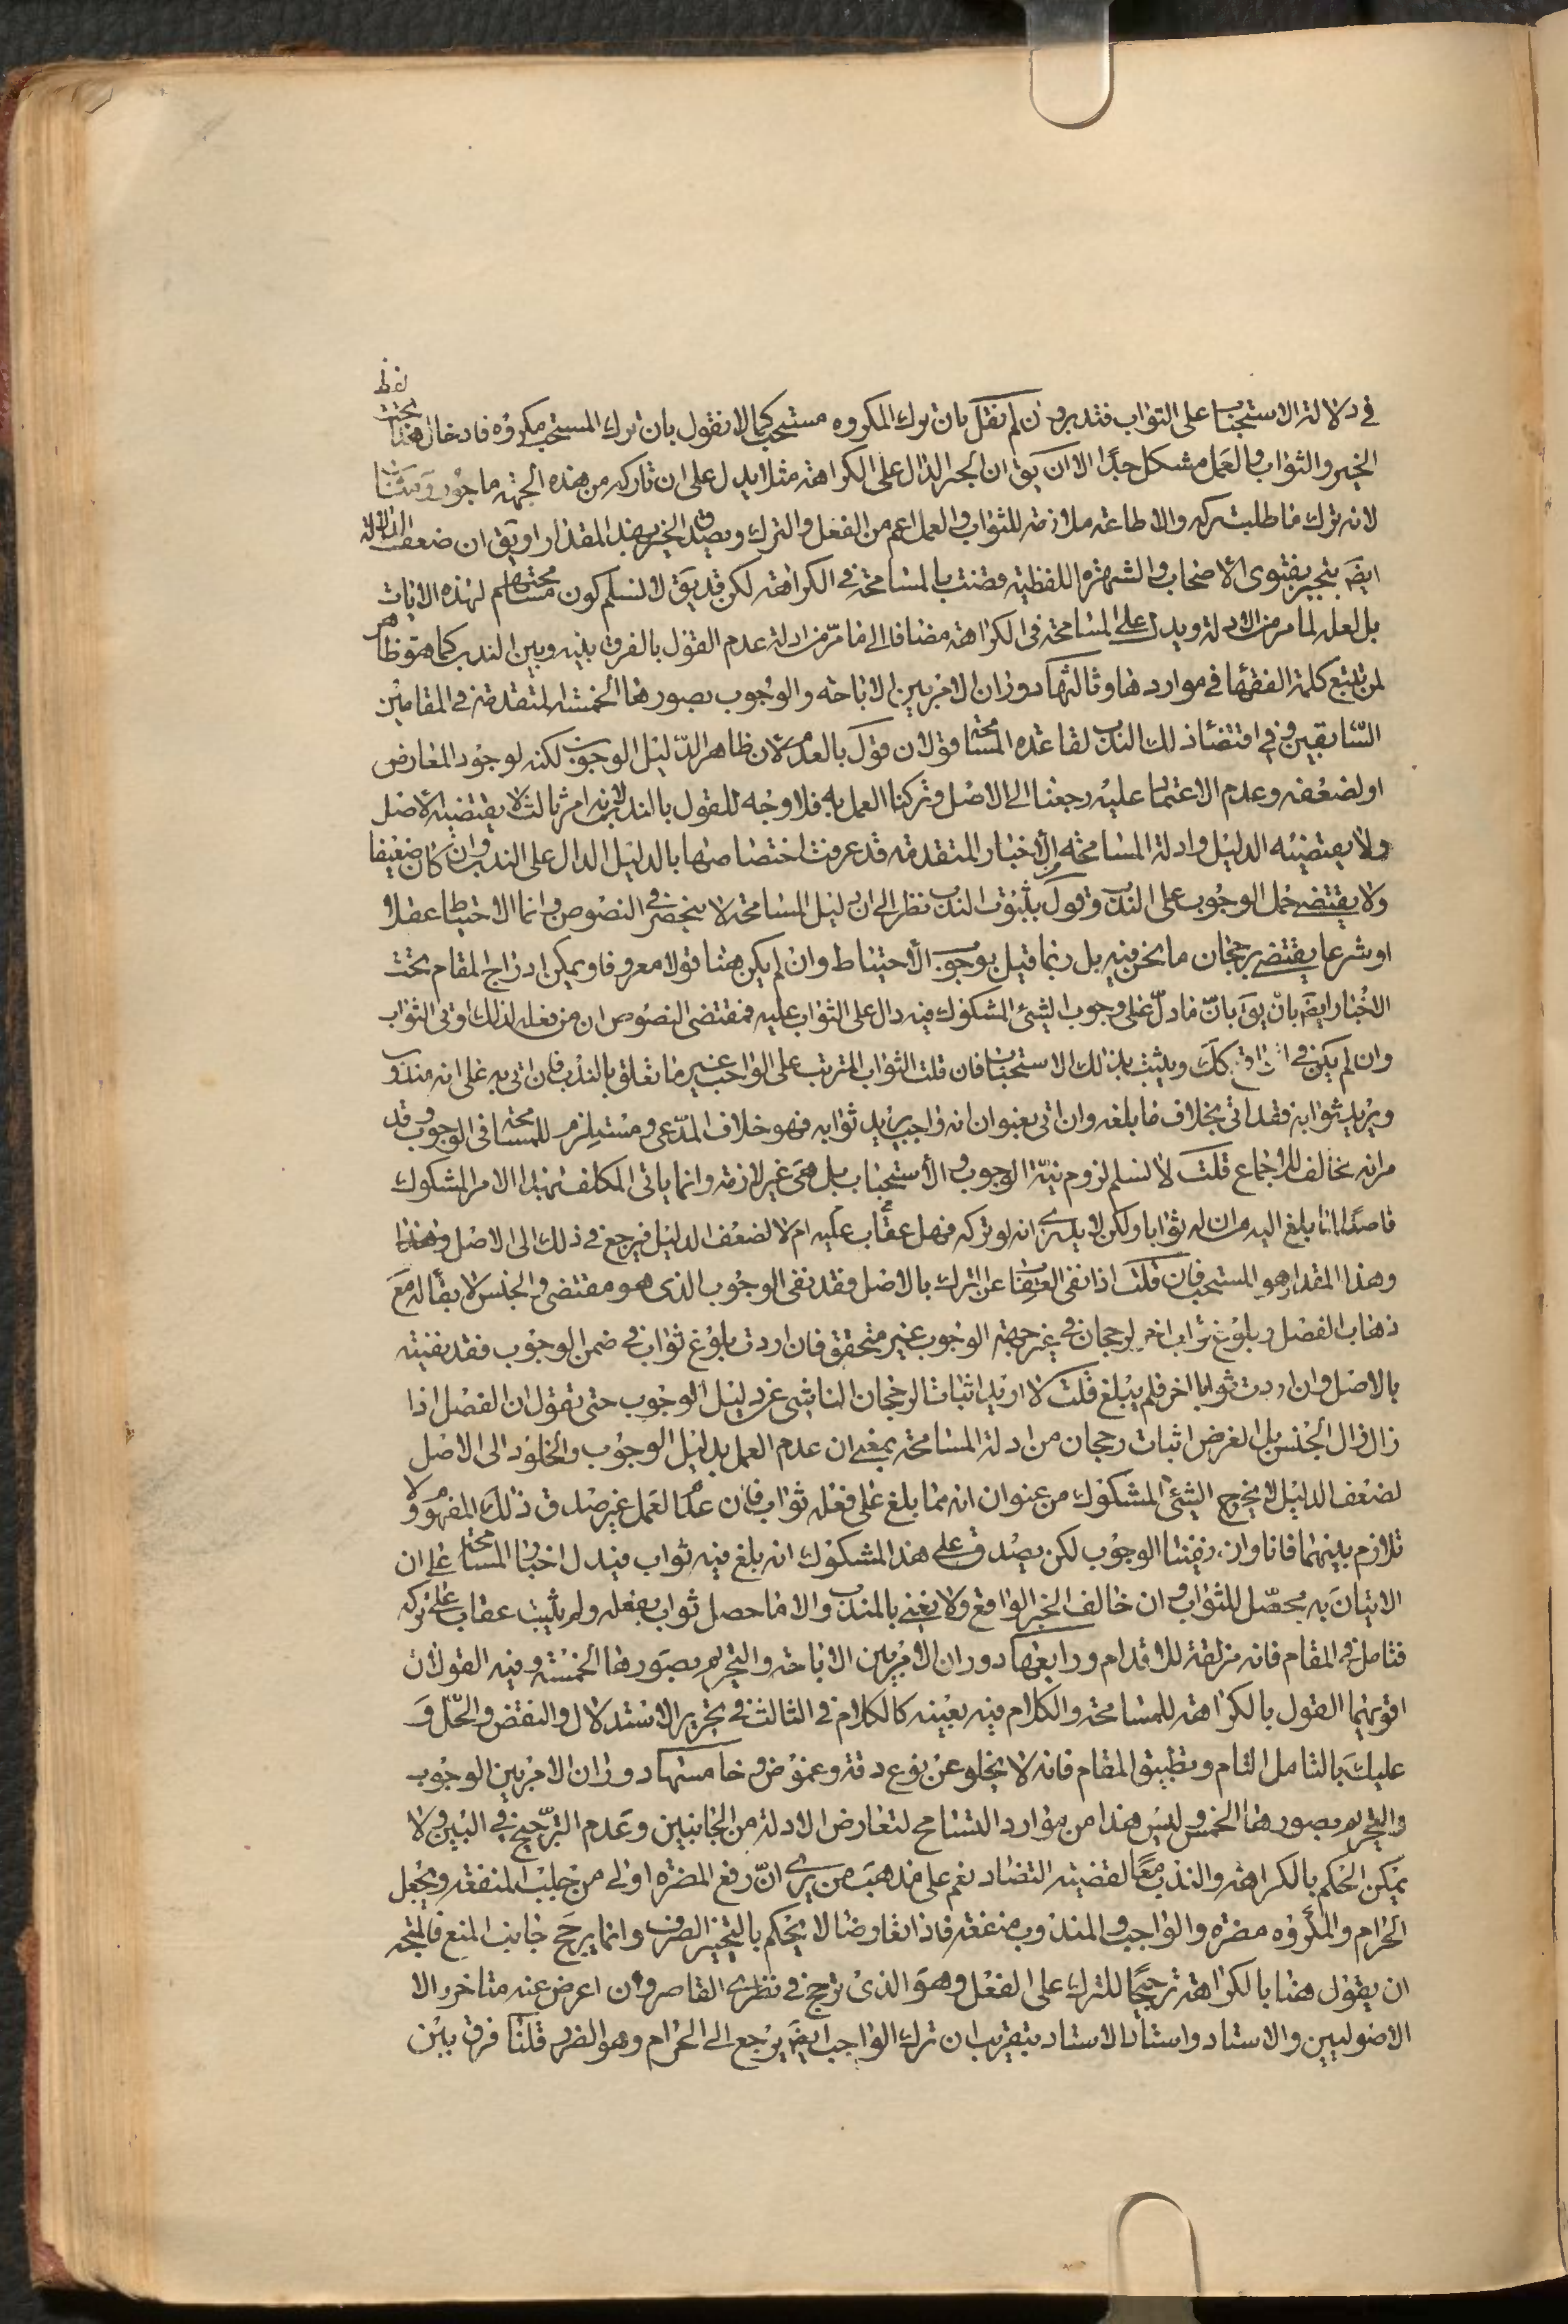 لفظ
في دلالة الاستحباب على الثواب فتدبر وان لم نقل بان ترك المكروه مستحب كما لا نقول بان ترك المستحب مكروه فادخال هذا تحت
الخبر والثواب والعمل مشكل جدّا الا ان يق ان الخبر الدال على الكراهة مثلا يدل على ان تاركه من هذه الجهة ماجور ومثاب
لانه ترك ما طلب تركه والاطاعة ملازمة للثواب والعمل اعم من الفعل والترك ويصدق الخبر بهذا المقدار او يق ان ضعف الدلالة
ايض ينجبر بفتوى الاصحاب والشهرة اللفظية قضت بالمسامحة في الكراهة لكن قد يق لا نسلم كون مسامحتهم لهذه الايات
بل لعله لما مر من الادلة ويدل على المسامحة في الكراهة مضافا الى ما مرّ من ادلة عدم القول بالفرق بينه وبين الندب كما هو ظاهر
لمن تتبع كلمة الفقهاء في مواردها وثالثها دوران الامر بين الاباحة والوجوب بصورها الخمسة المتقدمة في المقامين
السّابقين وفي اقتضاء ذلك الندب لقاعدة المسامحة قولان قول بالعدم لان ظاهر الدّليل الوجوب لكنه لوجود المعارض
او لضعفه وعدم الاعتماد عليه رجعنا الى الاصل وتركنا العمل به فلا وجه للقول بالندب لانه امر ثالث لا يقتضيه الاصل
ولا يقتضيه الدليل وادلة المسامحة من الاخبار المتقدمة قد عرفت اختصاصها بالدليل الدال على الندب وان كان ضعيفا
ولا يقتضي حمل الوجوب على الندب وقول بثبوت الندب نظرا الى ان دليل المسامحة لا ينحصر في النصوص وانما الاحتياط عقلا
او شرعا يقتضي رجحان ما نحن فيه بل ربما قيل بوجوب الاحتياط وان لم يكن هنا قولا معروفا ويمكن ادراج المقام تحت
الاخبار ايض بان يق بانّ ما دلّ على وجوب الشئ المشكوك فيه دال على الثواب عليه فمقتضى النصوص ان من فعله لذلك اوتي الثواب
وان لم يكن في الواقع كك ويثبت بذلك الاستحباب فان قلت الثواب المترتب على الواجب غير ما تعلق بالندب فان اتى به على انه مندوب
ويريد ثوابه فقد اتى بخلاف ما بلغه وان اتى بعنوان انه واجب يريد ثوابه فهو خلاف المدّعى ومستلزم للمسامحة في الوجوب وقد
مر انه مخالف للاجماع قلت لا نسلم لزوم نيّة الوجوب والاستحباب بل هى غير لازمة وانما ياتى المكلف بهذا الامر المشكوك
قاصدا لما بلغ اليه من ان له ثوابا ولكن لا يدرى انه لو تركه فهل عقاب عليه ام لا لضعف الدليل فيرجع في ذلك الى الاصل وهذا
وهذا المقدار هو المستحب فان قلت اذا نفى العقاب عن الترك بالاصل فقد نفى الوجوب الذى هو مقتضى والجنس لا بقاء له مع
ذهاب الفصل وبلوغ ثواب اخر لرجحان في غير جهة الوجوب غير متحقق فان اردت بلوغ ثواب في ضمن الوجوب فقد نفيته
بالاصل وان اردت ثوابا اخر فلم يبلغ قلت لا اريد اثبات الرجحان الناشى عن دليل الوجوب حتى تقول ان الفصل اذا
زال زال الجنس بل الغرض اثبات رجحان من ادلة المسامحة بمعنى ان عدم العمل بدليل الوجوب والخلود الى الاصل
لضعف الدليل لا يخرج الشئ المشكوك من عنوان انه مما بلغ على فعله ثواب فان عدم العمل غير صدق ذلك المفهوم ولا
تلازم بينهما فانا وان نفينا الوجوب لكن يصدق على هذا المشكوك انه بلغ فيه ثواب فيدل اخبار المسامحة على ان
الاتيان به محصّل للثواب وان خالف الخبر الواقع ولا يعنى بالمندوب والا ما حصل ثواب بفعله ولم يثبت عقاب على تركه
فتامل في المقام فانه مزلقة للاقدام ورابعها دوران الامر بين الاباحة والتحريم بصورها الخمسة وفيه القولان
اقويهما القول بالكراهة للمسامحة والكلام فيه بعينه كالكلام في الثالث في تحرير الاستدلال والنقض والحّل و
عليك بالتامل التام وتطبيق المقام فانه لا يخلو عن نوع دقة وغموض وخامسها دوران الامر بين الوجوب
والتحريم بصورها الخمس وليس هذا من موارد التسامح لتعارض الادلة من الجانبين وعدم الترّجيح في البين ولا
يمكن الحكم بالكراهة والندب معا لقضية التضاد نعم على مذهب من يرى انّ رفع المضرة اولى من جلب المنفعة ويجعل
الحرام والمكروه مضرة والواجب والمندوب منفعة فاذا تعارضا لا يحكم بالتخيير الصرف وانما يرجح جانب المنع فالمتجه
ان يقول هنا بالكراهة ترجيحًا للترك على الفعل وهو الذى ترجح في نظرى القاصر وان اعرض عنه متاخروا الا
الاصوليين والاستاد واستاد الاستاد بتقريب ان ترك الواجب ايض يرجع الى الحرام وهو الضرر قلنا فرق بين